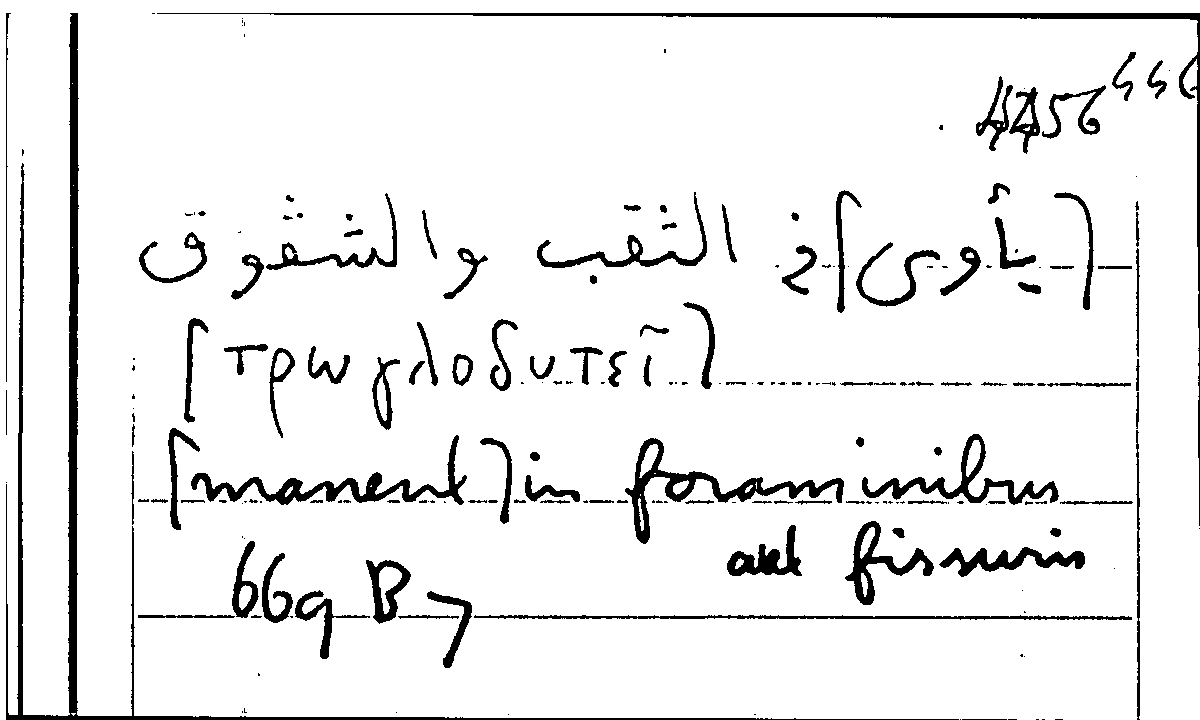 [يأوى] في الثقب والشقوق
[τρωγλοδυτεῖ]
[manent] in foraminibus
aut fissuris
669 B 7